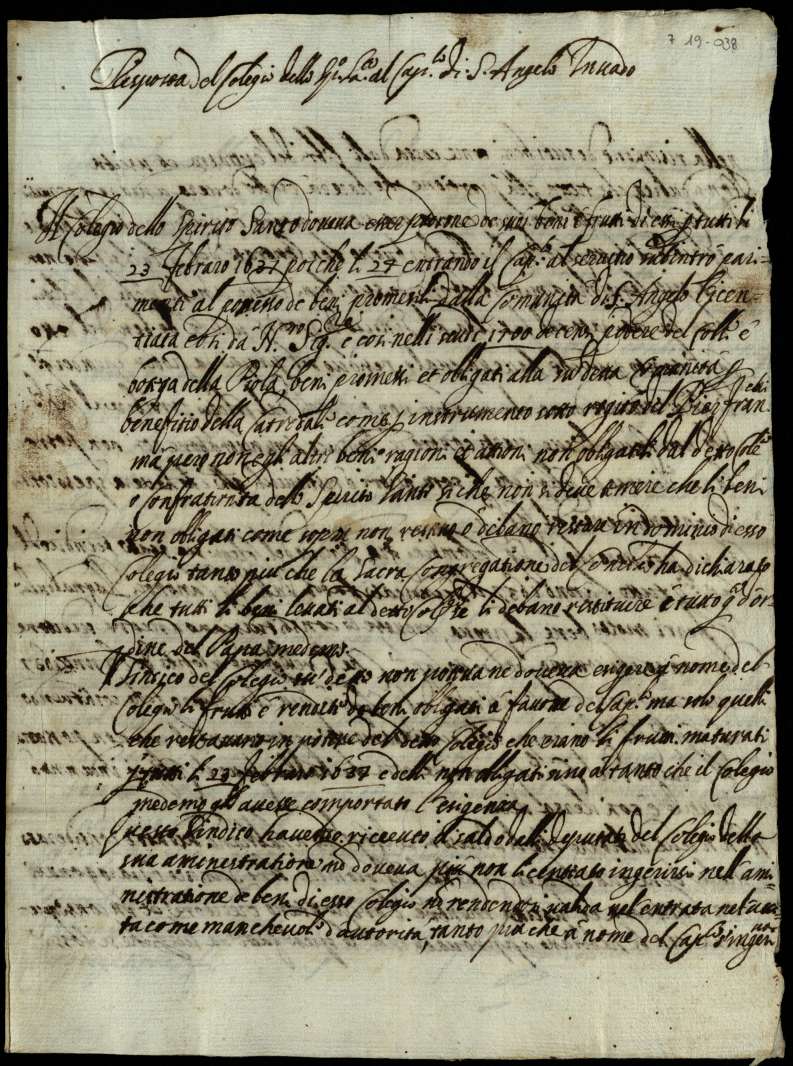 7 19-038
Risposta del Colegio dello Sp.to S.to al Cap.lo di S. Angelo In Vado
Il Colegio dello Spirito Santo doveva esser padrone de suoi beni e frutti di essi p tutti li
23 Febraro 1637 poiche li 24 entrando il Cap.lo al servitio subentrò pari-
menti al possesso de beni promessili dalla Comunità di S. Angelo licen-
tiata così da N.ro Sig.re e così nelli scudi 1700 de censi, podere del Coll.o e
botega della Piola, beni promessi et obligati alla sudetta Comunità p
benefitio della Catredale come p instrumento sotto rogito del Pier Fran.
mà però non gli altri beni ragioni et ationi non obligati dal detto Colegio
o Confraternita dello Spirito Santo si che non si deve temere che li beni
non obligati come sopra non restino ò debano restare in dominio di esso
Colegio tanto più che la Sacra Congregatione del Concilio ha dichiarato
che tutti li beni levati al detto Colegio se li debano restituire e tutto q.o d'or-
dine del Papa medemo
Sindico del Colegio sud.o non poteva ne doveva exigere à nome del
Colegio li frutti e rendite de beni obligati à favore del Cap.lo ma solo quelli
che restavano in potere del detto Colegio che erano li frutti maturati
p tutti li 23 Febraro 1637 e delli non obligati sino a tanto che il Colegio
medemo gli avesse comportato l'exigenza
questo Sindico havendo ricevuto il saldo dalli deputati del Colegio della
sua aministratione nò doveva più non licentiato ingerirsi nell'ami-
nistratione de beni di esso Colegio nò rendendosi valida nel entrata nel
ta come manchevole d'autorità, tanto più che à nome del Cap.lo s'ingeri